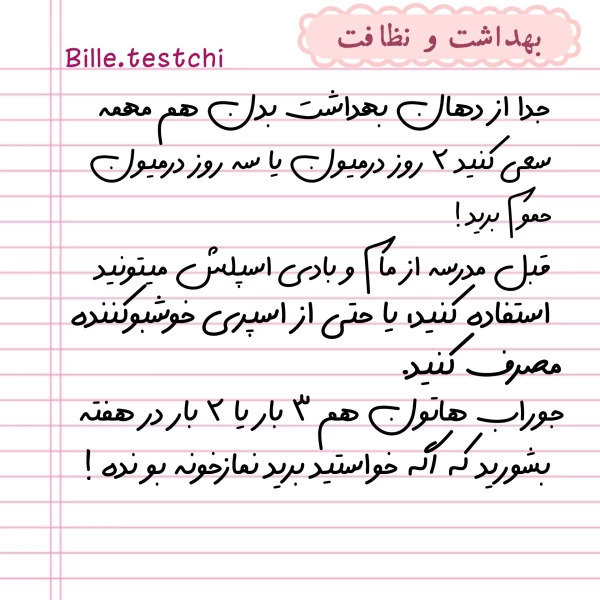 بهداشت و نظافت
Bille.testchi
جدا از دهان بهداشت بدن هم مهمه
سعی کنید ۲ روز درمیون یا سه روز درمیون
حموم برید!
قبل مدرسه از مام و بادی اسپلش میتونید
استفاده کنید، یا حتی از اسپری خوشبوکننده
مصرف کنید.
جوراب هاتون هم ۳ بار یا ۲ بار در هفته
بشورید که اگه خواستید برید نمازخونه بو نده !